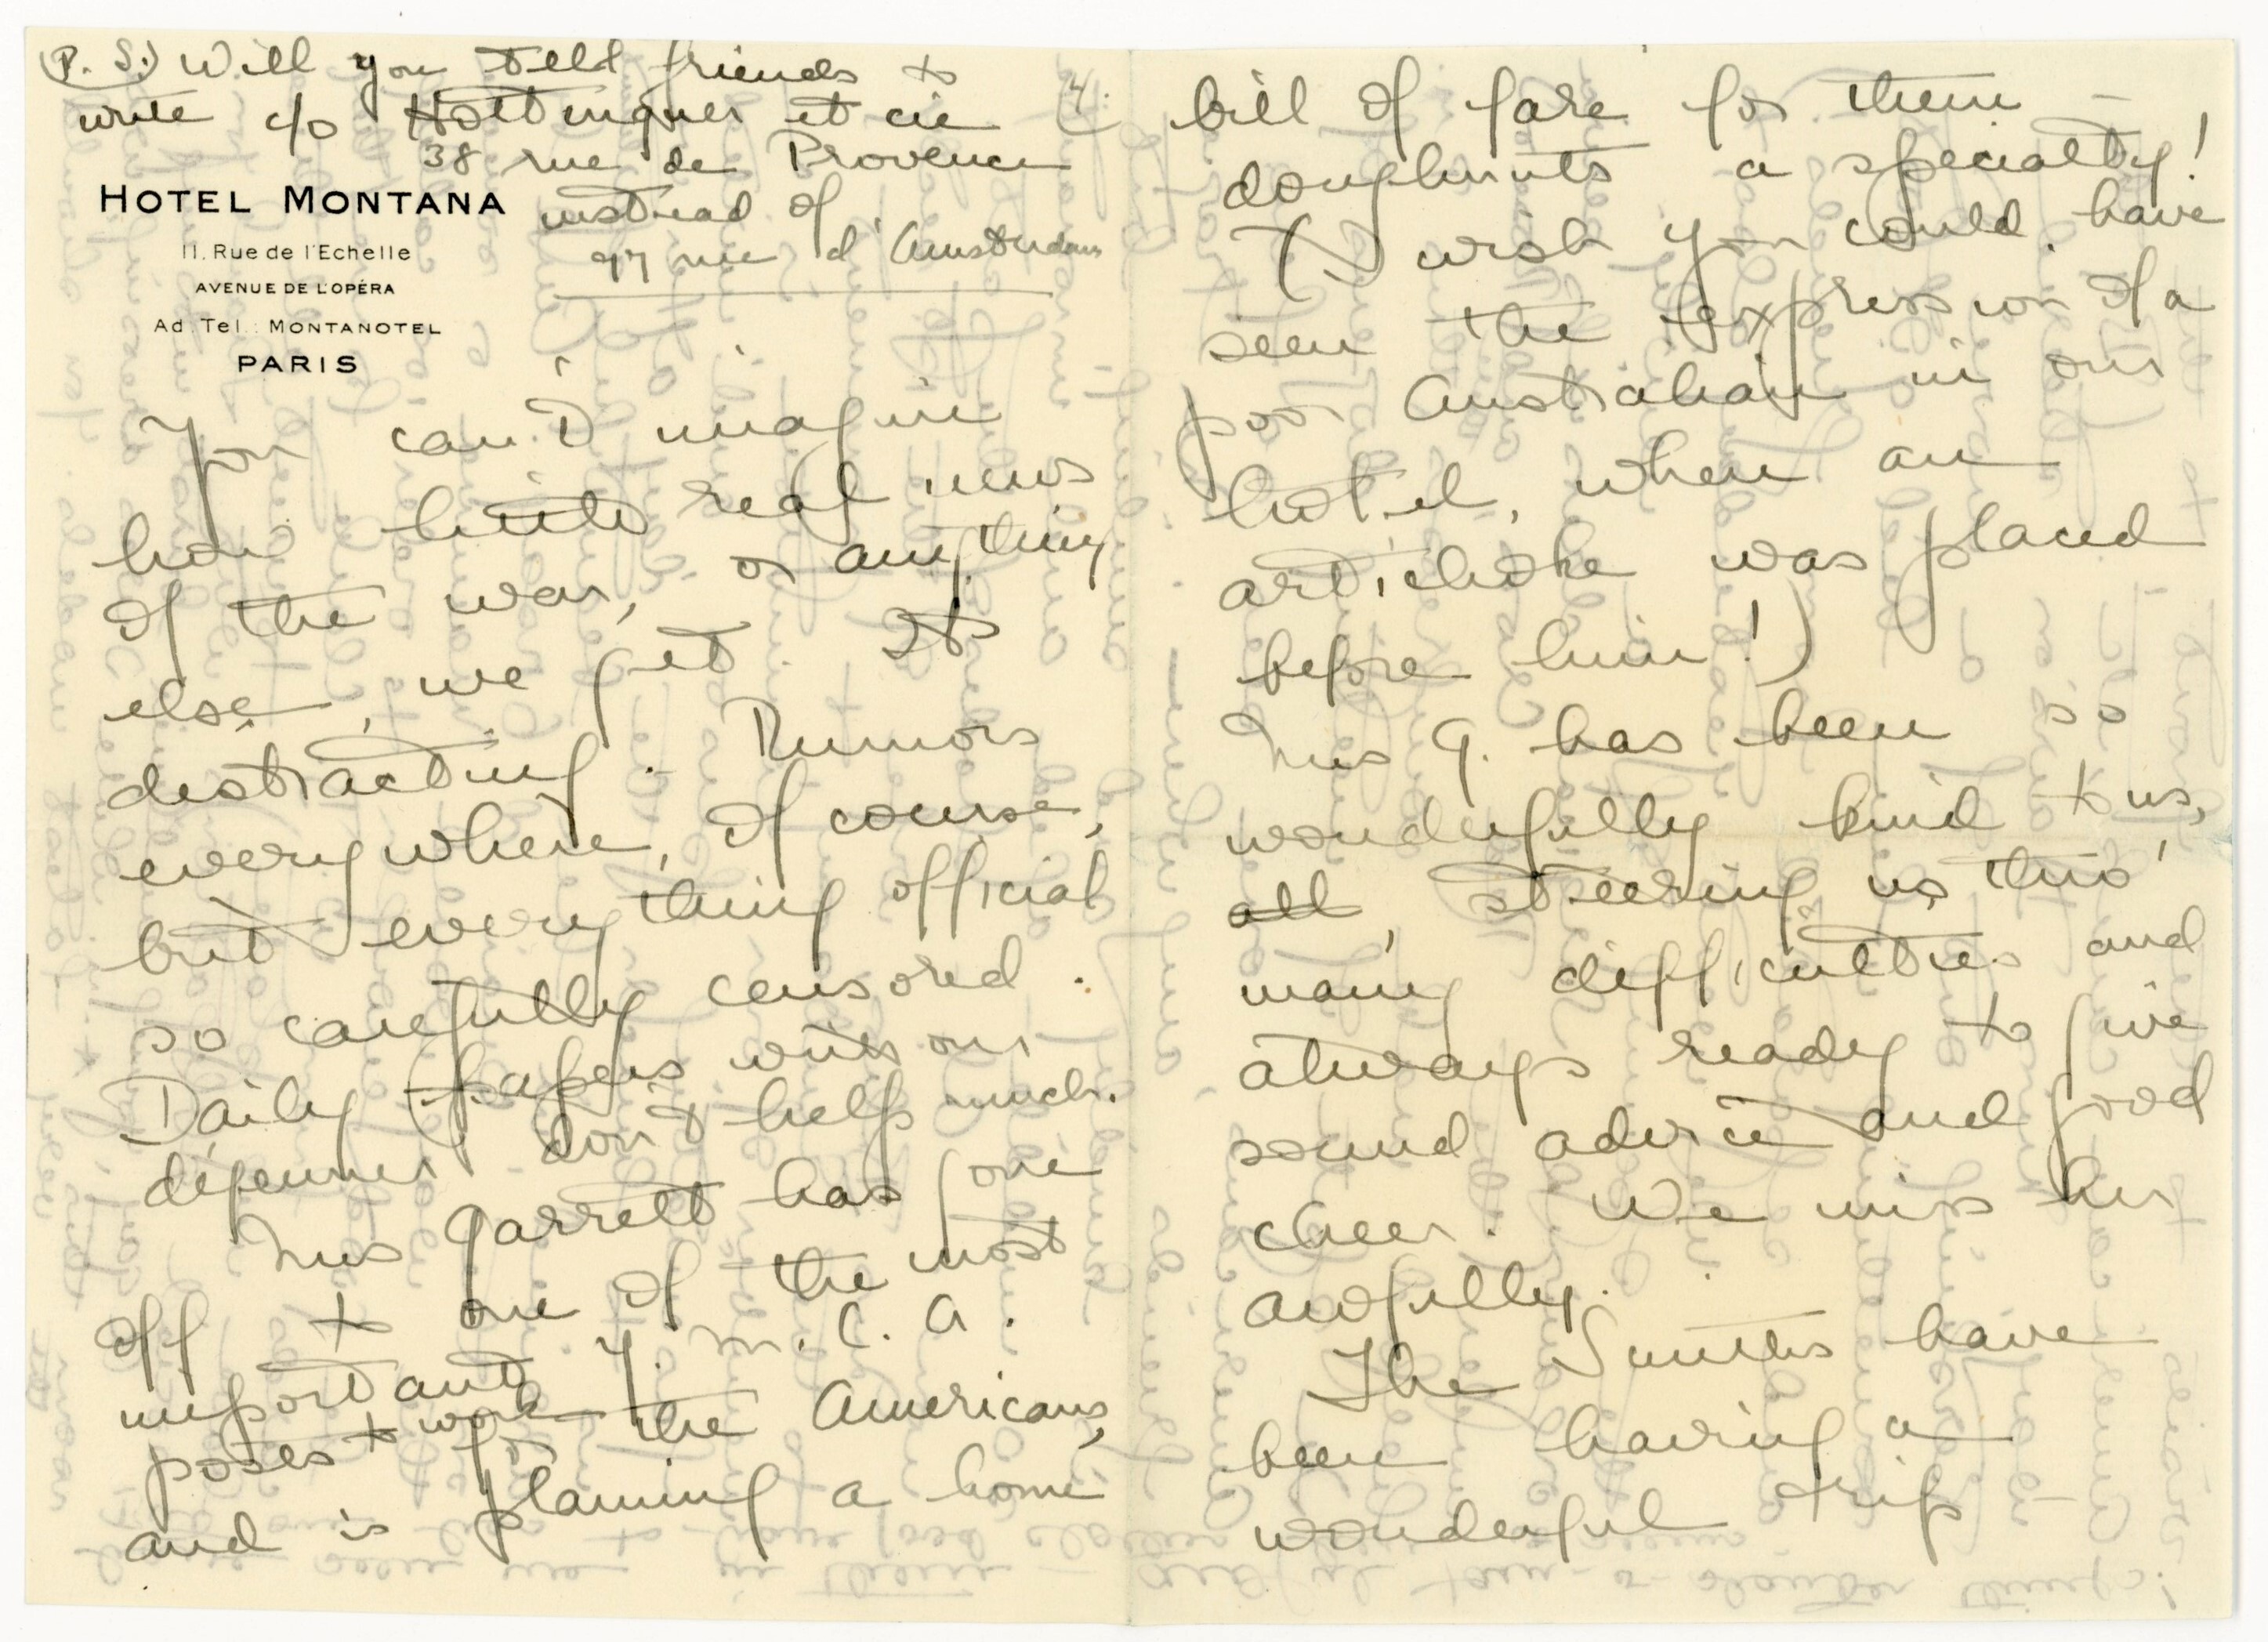 (P. S.) Will you tell friends to
write c/o Hottinguer et cie
38 rue de Provence
instead of
97 rue d'Amsterdam
4.
HOTEL MONTANA
11, Rue de l'Echelle
AVENUE DE L'OPÉRA
Ad. Tel.: MONTANOTEL
PARIS
You can't imagine
how little real news
of the war, or anything
else, we get. Its
distracting. Rumors
everywhere, of course,
but everything official
so carefully censored.
Daily papers with our
déjeuner don't help much.
Mrs Garrett has gone
off to one of the most
important Y. M. C. A.
posts to work for the Americans,
and is planning a home
bill of fare for them —
doughnuts a specialty!
(I wish you could have
seen the expression of a
poor Australian in our
hotel, when an
artichoke was placed
before him!)
Mrs G. has been so
wonderfully kind to us,
all, steering us thro'
many difficulties and
always ready to give
sound advice and good
cheer. We miss her
awfully.
The Smiths have
been having a
wonderful trip